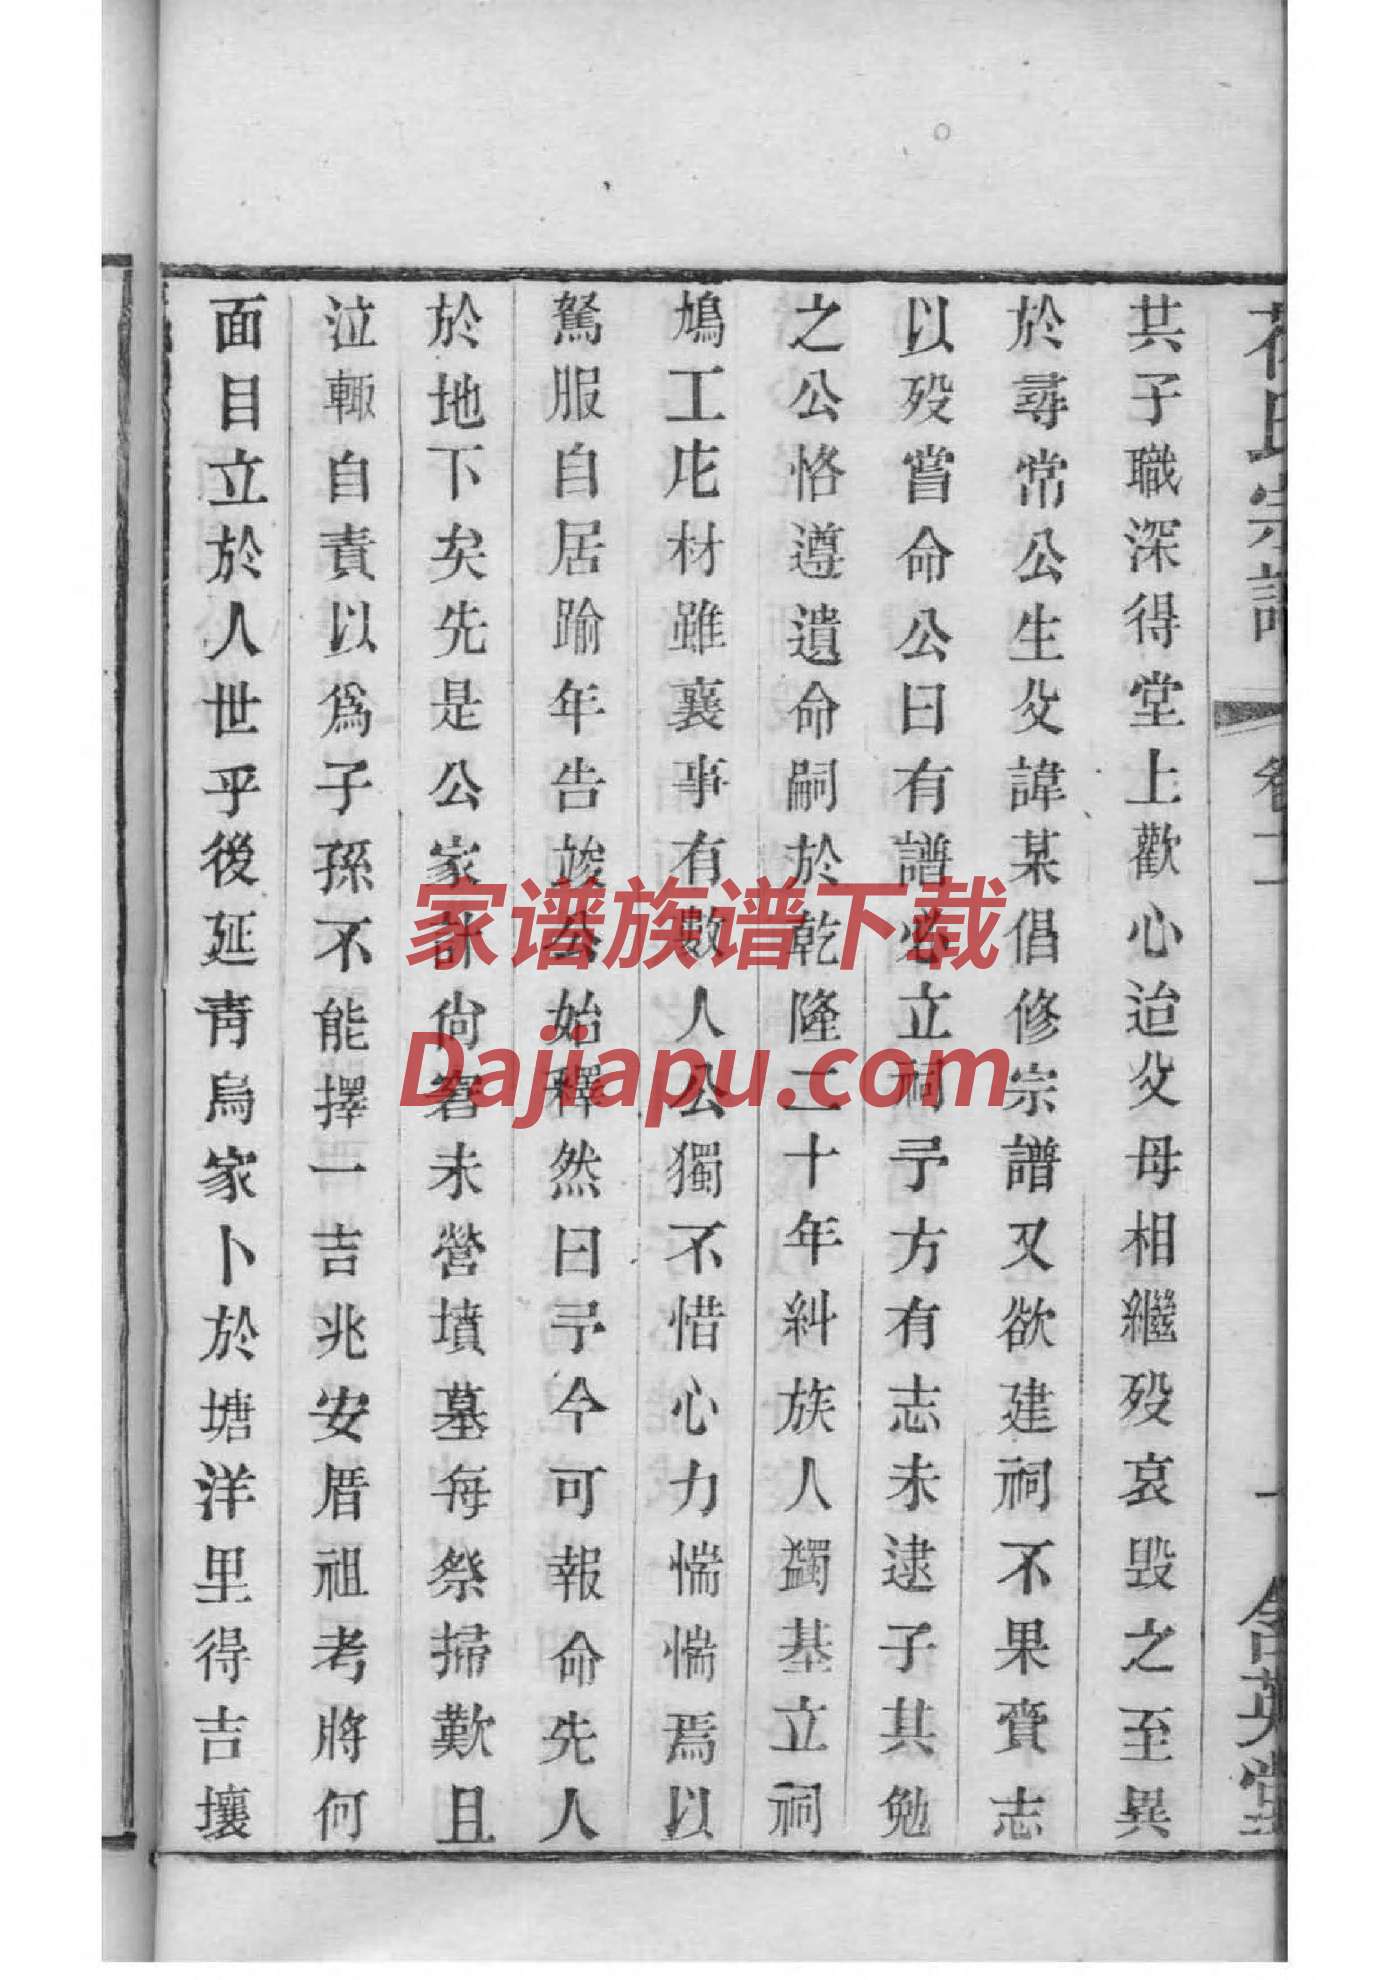 共子職深得堂上歡心迨父母相繼歿哀毀之至異
於尋常公生父諱某倡修宗譜又欲建祠不果賫志
以歿嘗命公曰有譜必立祠予方有志未逮子其勉
之公恪遵遺命嗣於乾隆二十年糾族人蠲基立祠
鳩工庀材雖襄事有數人公獨不惜心力惴惴焉以
駑服自居踰年告竣公始釋然曰予今可報命先人
於地下矣先是公家計尙窘未營墳墓每祭掃歎且
泣輒自責以爲子孫不能擇一吉兆安厝祖考將何
面目立於人世乎後延青烏家卜於塘洋里得吉壤
家谱族谱下载
Dajiapu.com